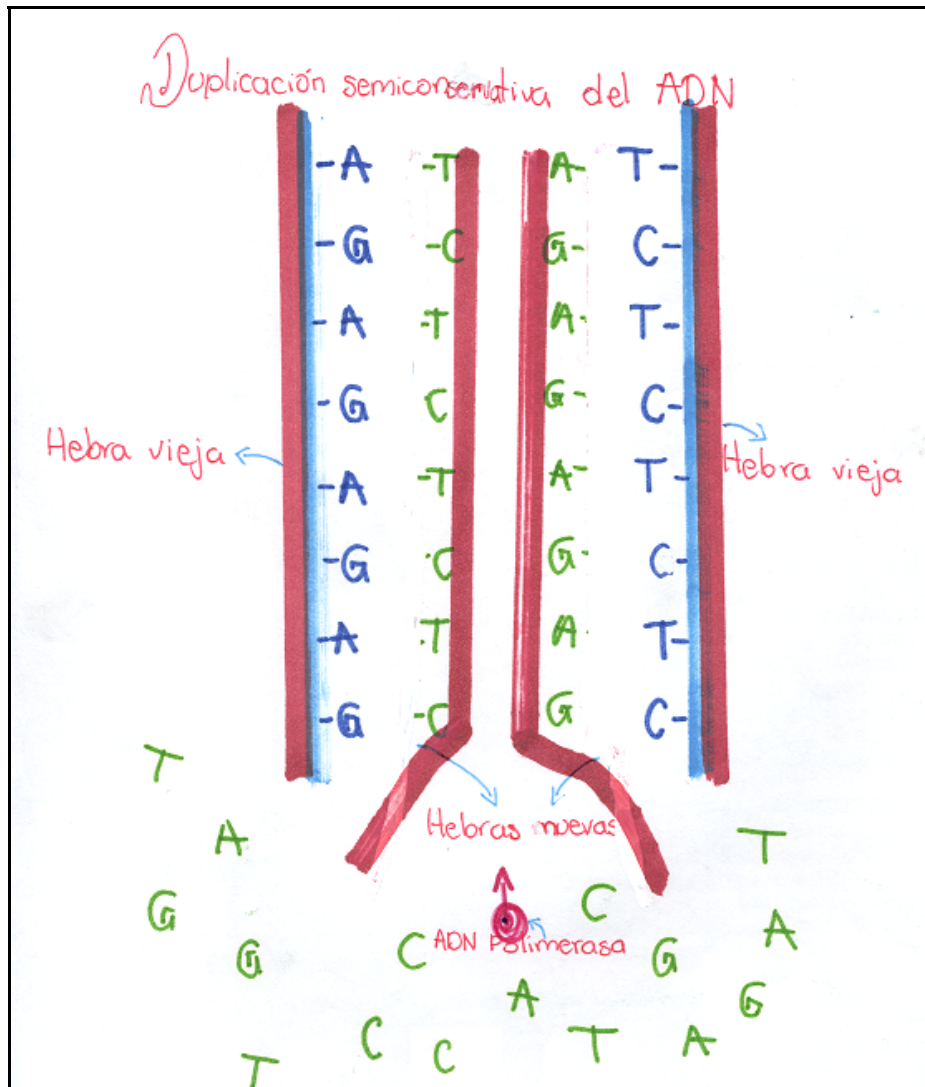 Duplicación semiconservativa del ADN
-A -T A- T-
-G -C G- C-
-A -T A- T-
-G C G- C-
-A -T A- T-
-G -C G- C-
-A -T A T-
-G -C G C-
Hebra vieja
Hebra vieja
Hebras nuevas
T
A
T
G
C
A
G
C
ADN Polimerasa
G
A
G
T
C
C
T
A